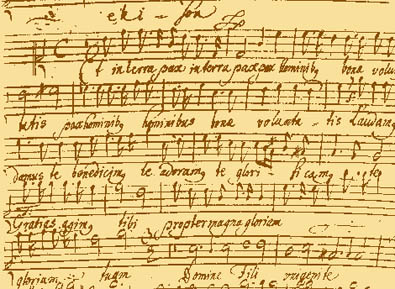 eki - son
Et in terra pax in terra pax pax hominib, bonæ volu
tatis pax hominib, hominibus bonæ volunta - tis Laudam,
damus te benedicim, te adoram, te glori ficam, te
gratias agim, tibi propter magna gloriam
gloriam tuam Domine Fili unigenite